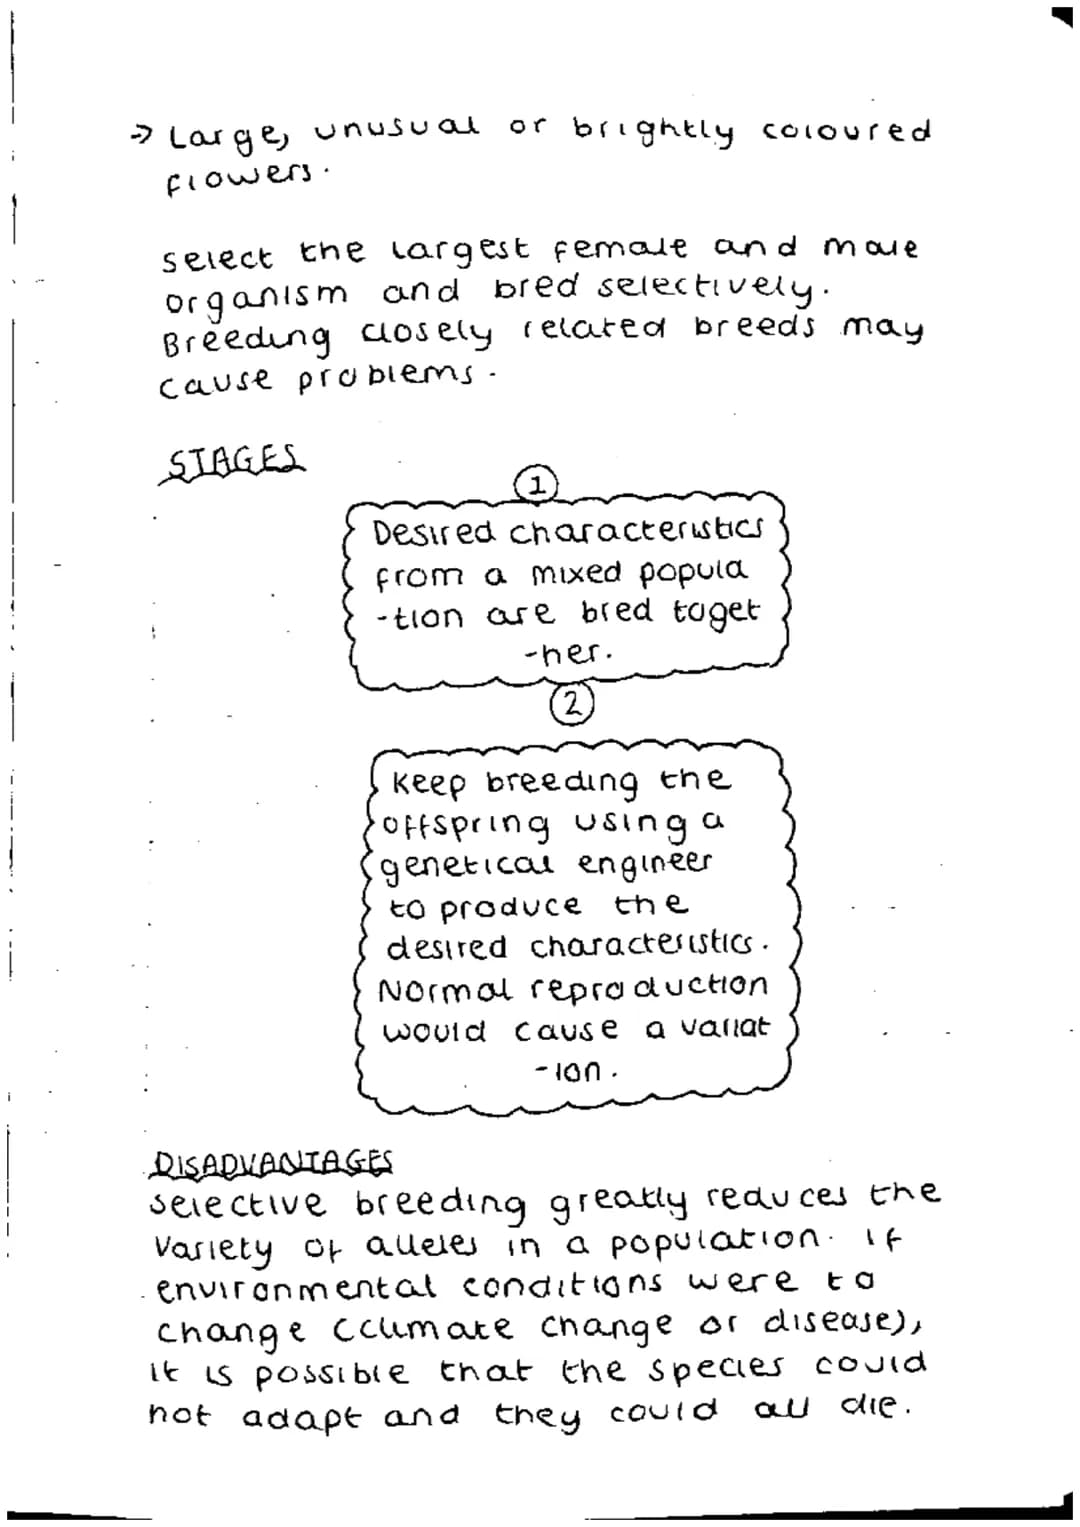 → Large, unusual or brightly coloured
flowers.
select the largest female and male
organism and bred selectively.
Breeding closely related breeds may
cause problems.
STAGES
1
Desired characteristics
from a mixed popula
-tion are bred toget
-her.
2
Keep breeding the
offspring using a
genetical engineer
to produce the
desired characteristics.
Normal reproduction
would cause a variat
-ion.
DISADVANTAGES
selective breeding greatly reduces the
variety of alleles in a population. If
environmental conditions were to
change (climate change or disease),
it is possible that the species could
not adapt and they could all die.